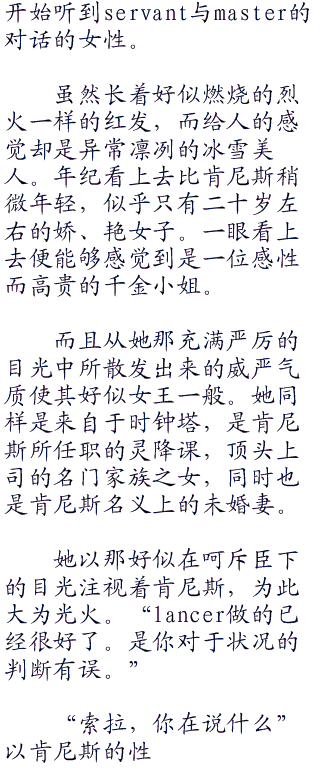 开始听到servant与master的
对话的女性。
虽然长着好似燃烧的烈
火一样的红发，而给人的感
觉却是异常凛冽的冰雪美
人。年纪看上去比肯尼斯稍
微年轻，似乎只有二十岁左
右的娇、艳女子。一眼看上
去便能够感觉到是一位感性
而高贵的千金小姐。
而且从她那充满严厉的
目光中所散发出来的威严气
质使其好似女王一般。她同
样是来自于时钟塔，是肯尼
斯所任职的灵降课，顶头上
司的名门家族之女，同时也
是肯尼斯名义上的未婚妻。
她以那好似在呵斥臣下
的目光注视着肯尼斯，为此
大为光火。“lancer做的已
经很好了。是你对于状况的
判断有误。”
“索拉，你在说什么”
以肯尼斯的性